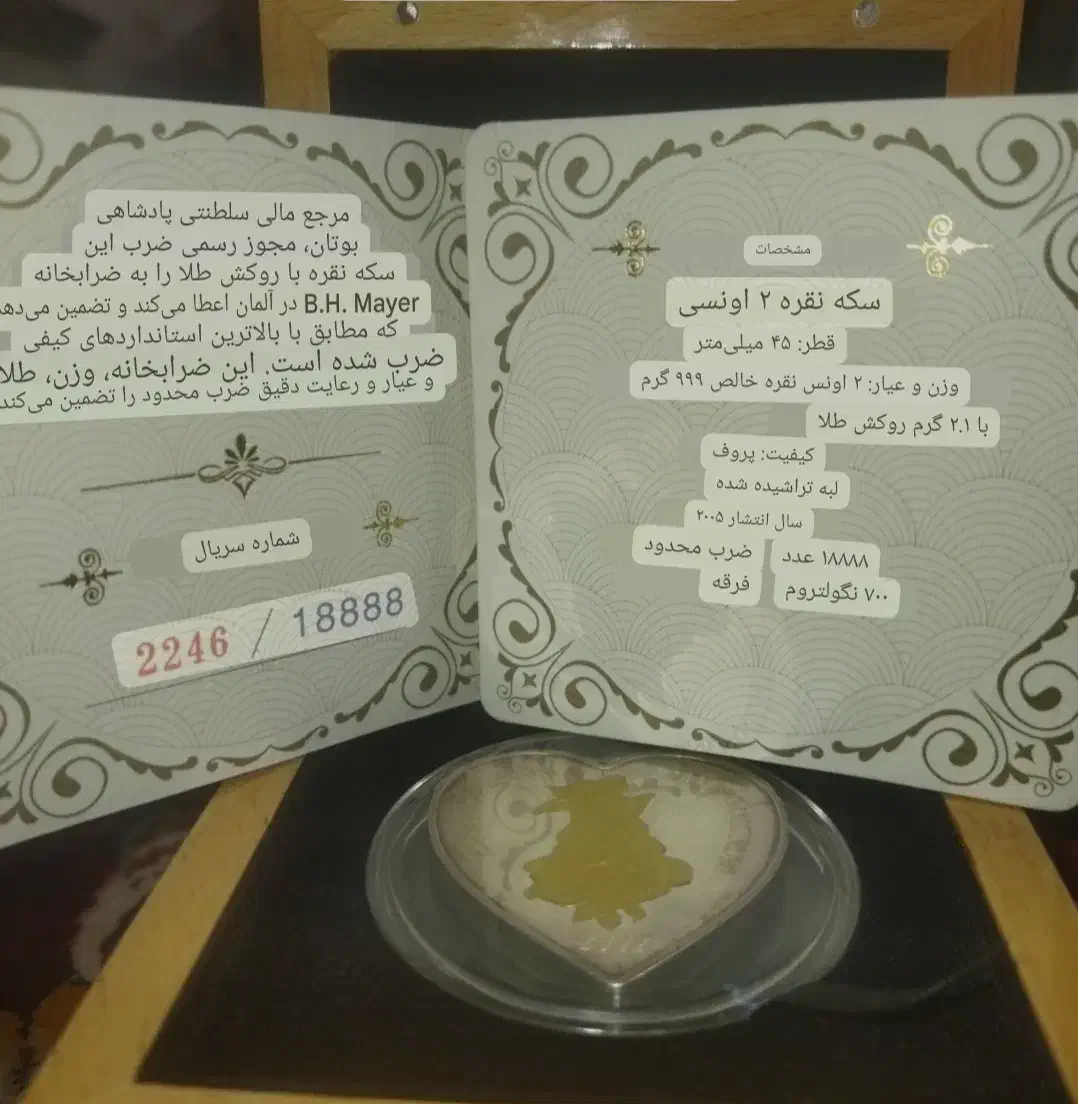 مرجع مالی سلطنتی پادشاهی
بوتان، مجوز رسمی ضرب این
سکه نقره با روکش طلا را به ضرابخانه
B.H. Mayer در آلمان اعطا می‌کند و تضمین می‌دهد
که مطابق با بالاترین استانداردهای کیفی
ضرب شده است. این ضرابخانه، وزن، طلا
و عیار و رعایت دقیق ضرب محدود را تضمین می‌کند
شماره سریال
2246 / 18888
مشخصات
سکه نقره ۲ اونسی
قطر: ۴۵ میلی‌متر
وزن و عیار: ۲ اونس نقره خالص ۹۹۹ گرم
با ۲.۱ گرم روکش طلا
کیفیت: پروف
لبه تراشیده شده
سال انتشار ۲۰۰۵
ضرب محدود ۱۸۸۸۸ عدد
فرقه ۷۰۰ نگولتروم